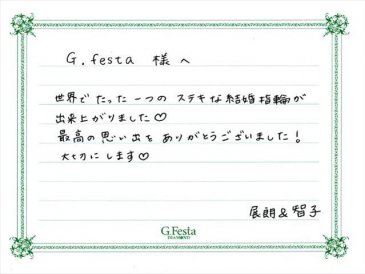 G.festa 様へ
世界でたった一つのステキな結婚指輪が
出来上がりました♡
最高の思い出をありがとうございました!
大切にします♡
展朗&智子
G.Festa
DIAMOND